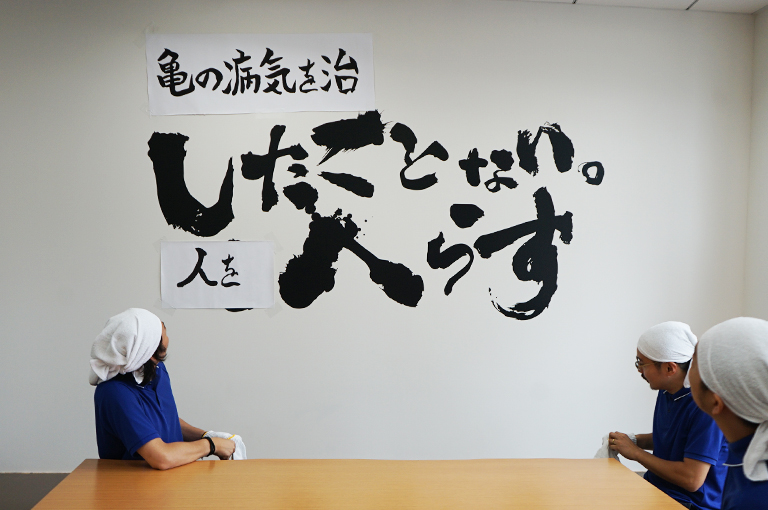 亀の病気を治
したことない。
人を入らす